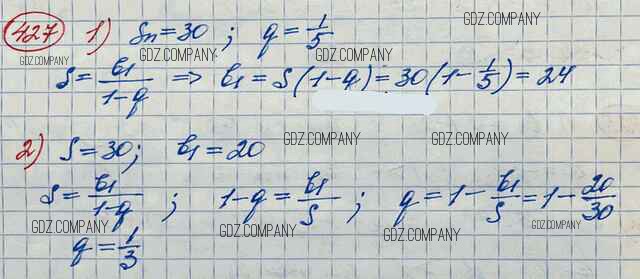 427 1) Sn = 30 ; q = 1/5
GDZ.COMPANY GDZ.COMPANY GDZ.COMPANY
S = b1/(1-q) ⇒ b1 = S(1-q) = 30(1-1/5) = 24
GDZ.COMPANY GDZ.COMPANY
2) S = 30; b1 = 20
S = b1/(1-q) ; 1-q = b1/S ; q = 1 - b1/S = 1 - 20/30
GDZ.COMPANY GDZ.COMPANY GDZ.COMPANY GDZ.COMPANY
q = 1/3